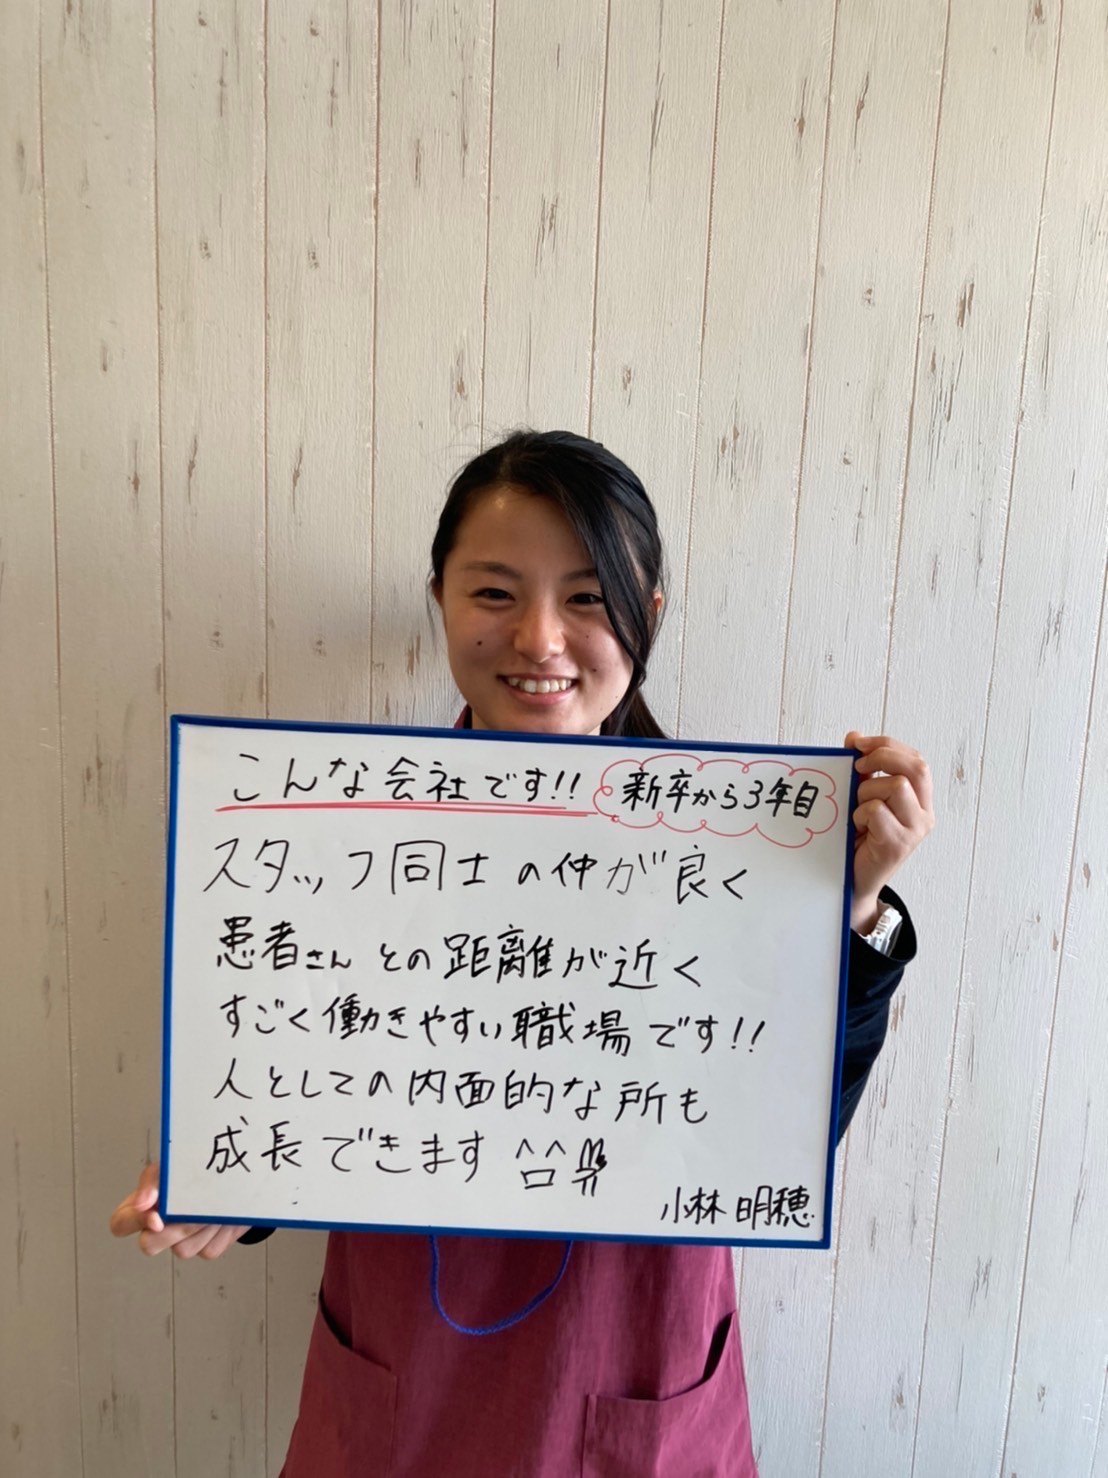 こんな会社です!!
新卒から3年目
スタッフ同士の仲が良く
患者さんとの距離が近く
すごく働きやすい職場です!!
人としての内面的な所も
成長できます ^口^
小林 明穂